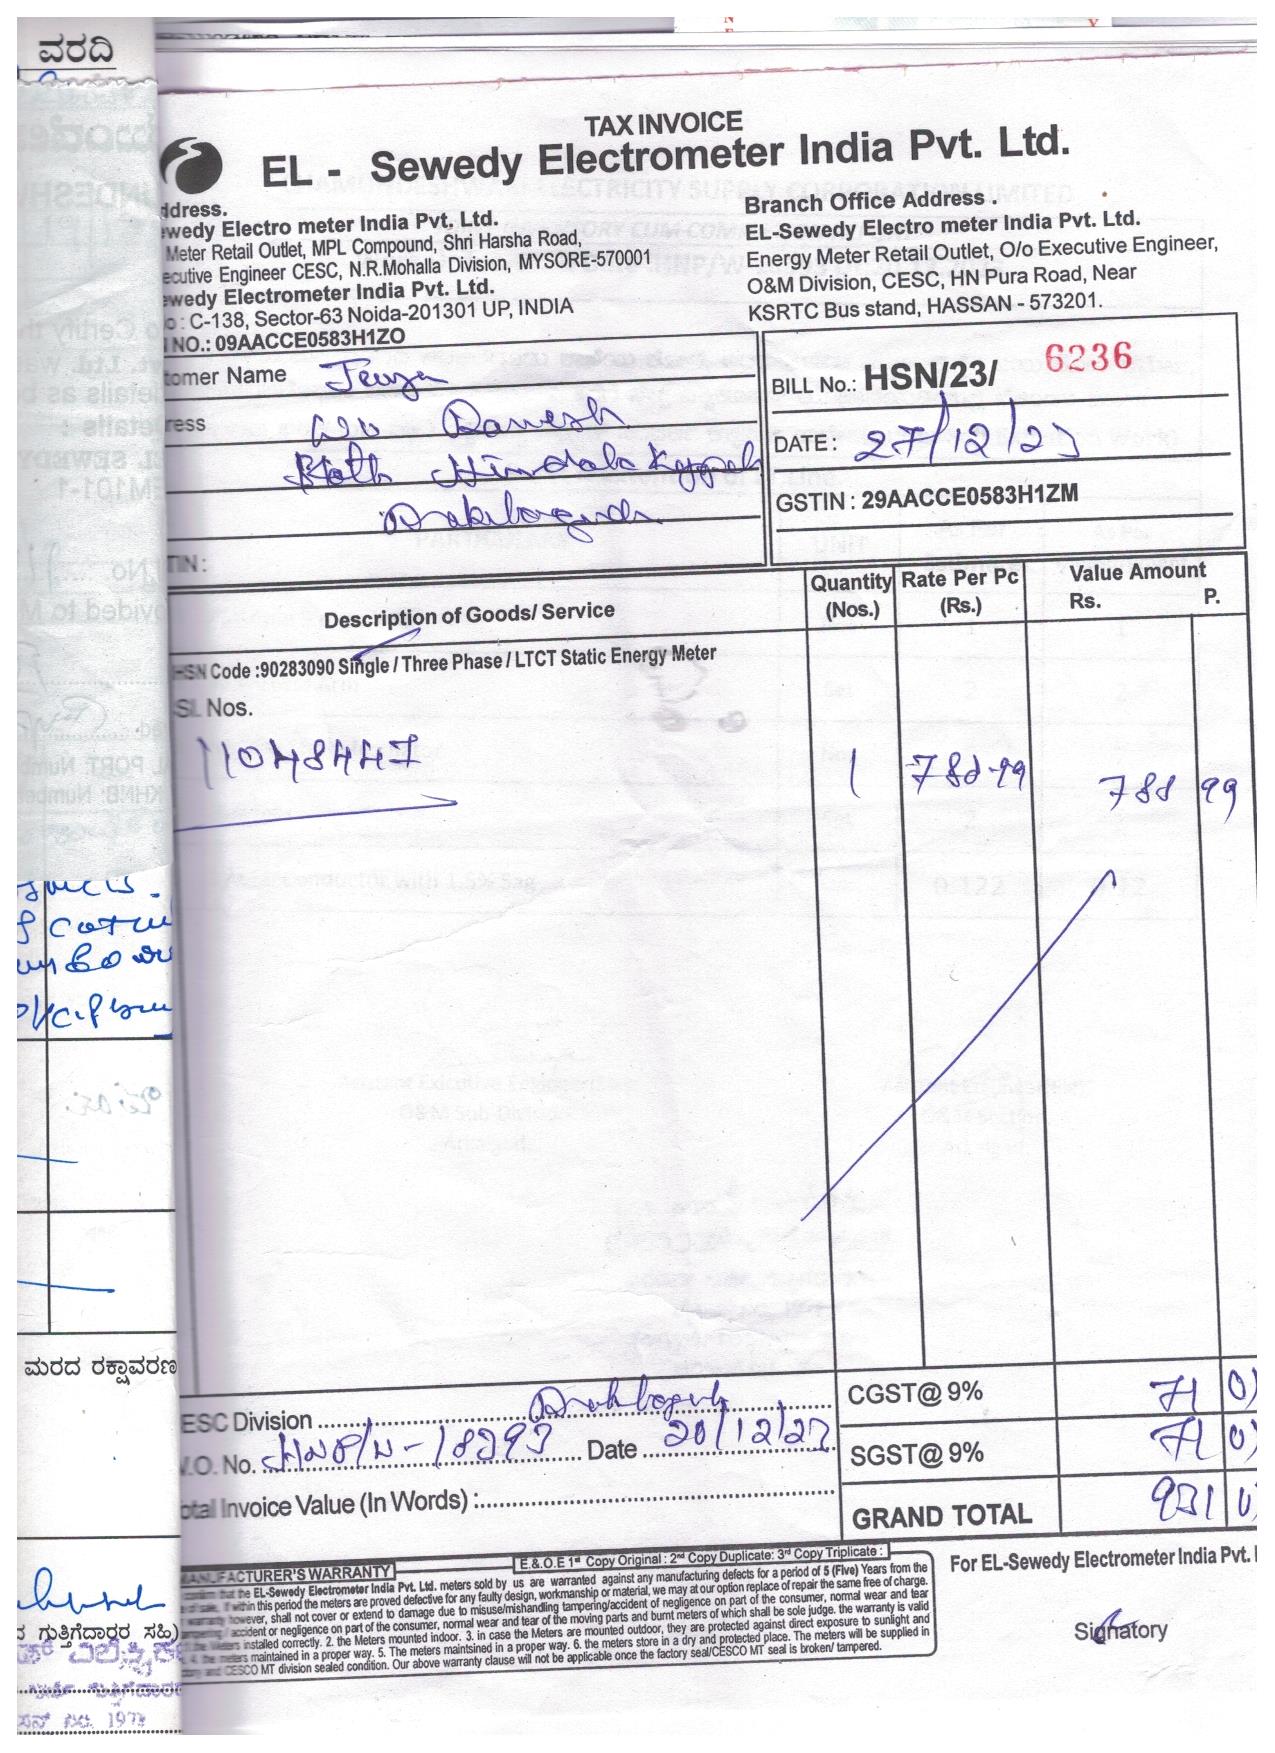 ವರದಿ
TAX INVOICE
EL - Sewedy Electrometer India Pvt. Ltd.
ddress.
ewedy Electro meter India Pvt. Ltd.
Meter Retail Outlet, MPL Compound, Shri Harsha Road,
ecutive Engineer CESC, N.R.Mohalla Division, MYSORE-570001
ewedy Electrometer India Pvt. Ltd.
o : C-138, Sector-63 Noida-201301 UP, INDIA
NO.: 09AACCE0583H1ZO
Branch Office Address .
EL-Sewedy Electro meter India Pvt. Ltd.
Energy Meter Retail Outlet, O/o Executive Engineer,
O&M Division, CESC, HN Pura Road, Near
KSRTC Bus stand, HASSAN - 573201.
tomer Name
ress Ramesh
TIN :
BILL No.: HSN/23/ 6236
DATE : 27/12/23
GSTIN : 29AACCE0583H1ZM
Description of Goods/ Service Quantity (Nos.) Rate Per Pc (Rs.) Value Amount Rs. P.
HSN Code :90283090 Single / Three Phase / LTCT Static Energy Meter
SI. Nos.
11048447 1 788-99 788 99
ESC Division
CGST@ 9% 71 0
V.O. No. HNP/W-18293 Date 20/12/23
SGST@ 9% 71 0
otal Invoice Value (In Words) :
GRAND TOTAL 931 0
E.& O.E 1st Copy Original : 2nd Copy Duplicate: 3rd Copy Triplicate :
MANUFACTURER'S WARRANTY
confirm that the EL-Sewedy Electrometer India Pvt. Ltd. meters sold by us are warranted against any manufacturing defects for a period of 5 (Five) Years from the
of sale. If within this period the meters are proved defective for any faulty design, workmanship or material, we may at our option replace of repair the same free of charge.
warranty however, shall not cover or extend to damage due to misuse/mishandling tampering/accident of negligence on part of the consumer, normal wear and tear
tampering / accident or negligence on part of the consumer, normal wear and tear of the moving parts and burnt meters of which shall be sole judge. the warranty is valid
the Meters installed correctly. 2. the Meters mounted indoor. 3. in case the Meters are mounted outdoor, they are protected against direct exposure to sunlight and
4. the meters maintained in a proper way. 5. The meters maintsined in a proper way. 6. the meters store in a dry and protected place. The meters will be supplied in
and CESCO MT division sealed condition. Our above warranty clause will not be applicable once the factory seal/CESCO MT seal is broken/ tampered.
For EL-Sewedy Electrometer India Pvt.
Signatory
ಮರದ ರಕ್ಷಾವರಣ
ಗುತ್ತಿಗೆದಾರರ ಸಹಿ)